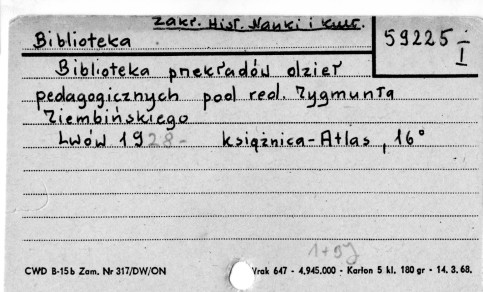 Zakr. Hist. Nauki i Kult.
Biblioteka
59225 I
Biblioteka przekładów dzieł
pedagogicznych pod red. Zygmunta
Ziembińskiego
Lwów 1928- książnica-Atlas, 16°
CWD B-15b Zam. Nr 317/DW/ON
Vrak 647 - 4,945.000 - Karton 5 kl. 180 gr - 14. 3. 68.